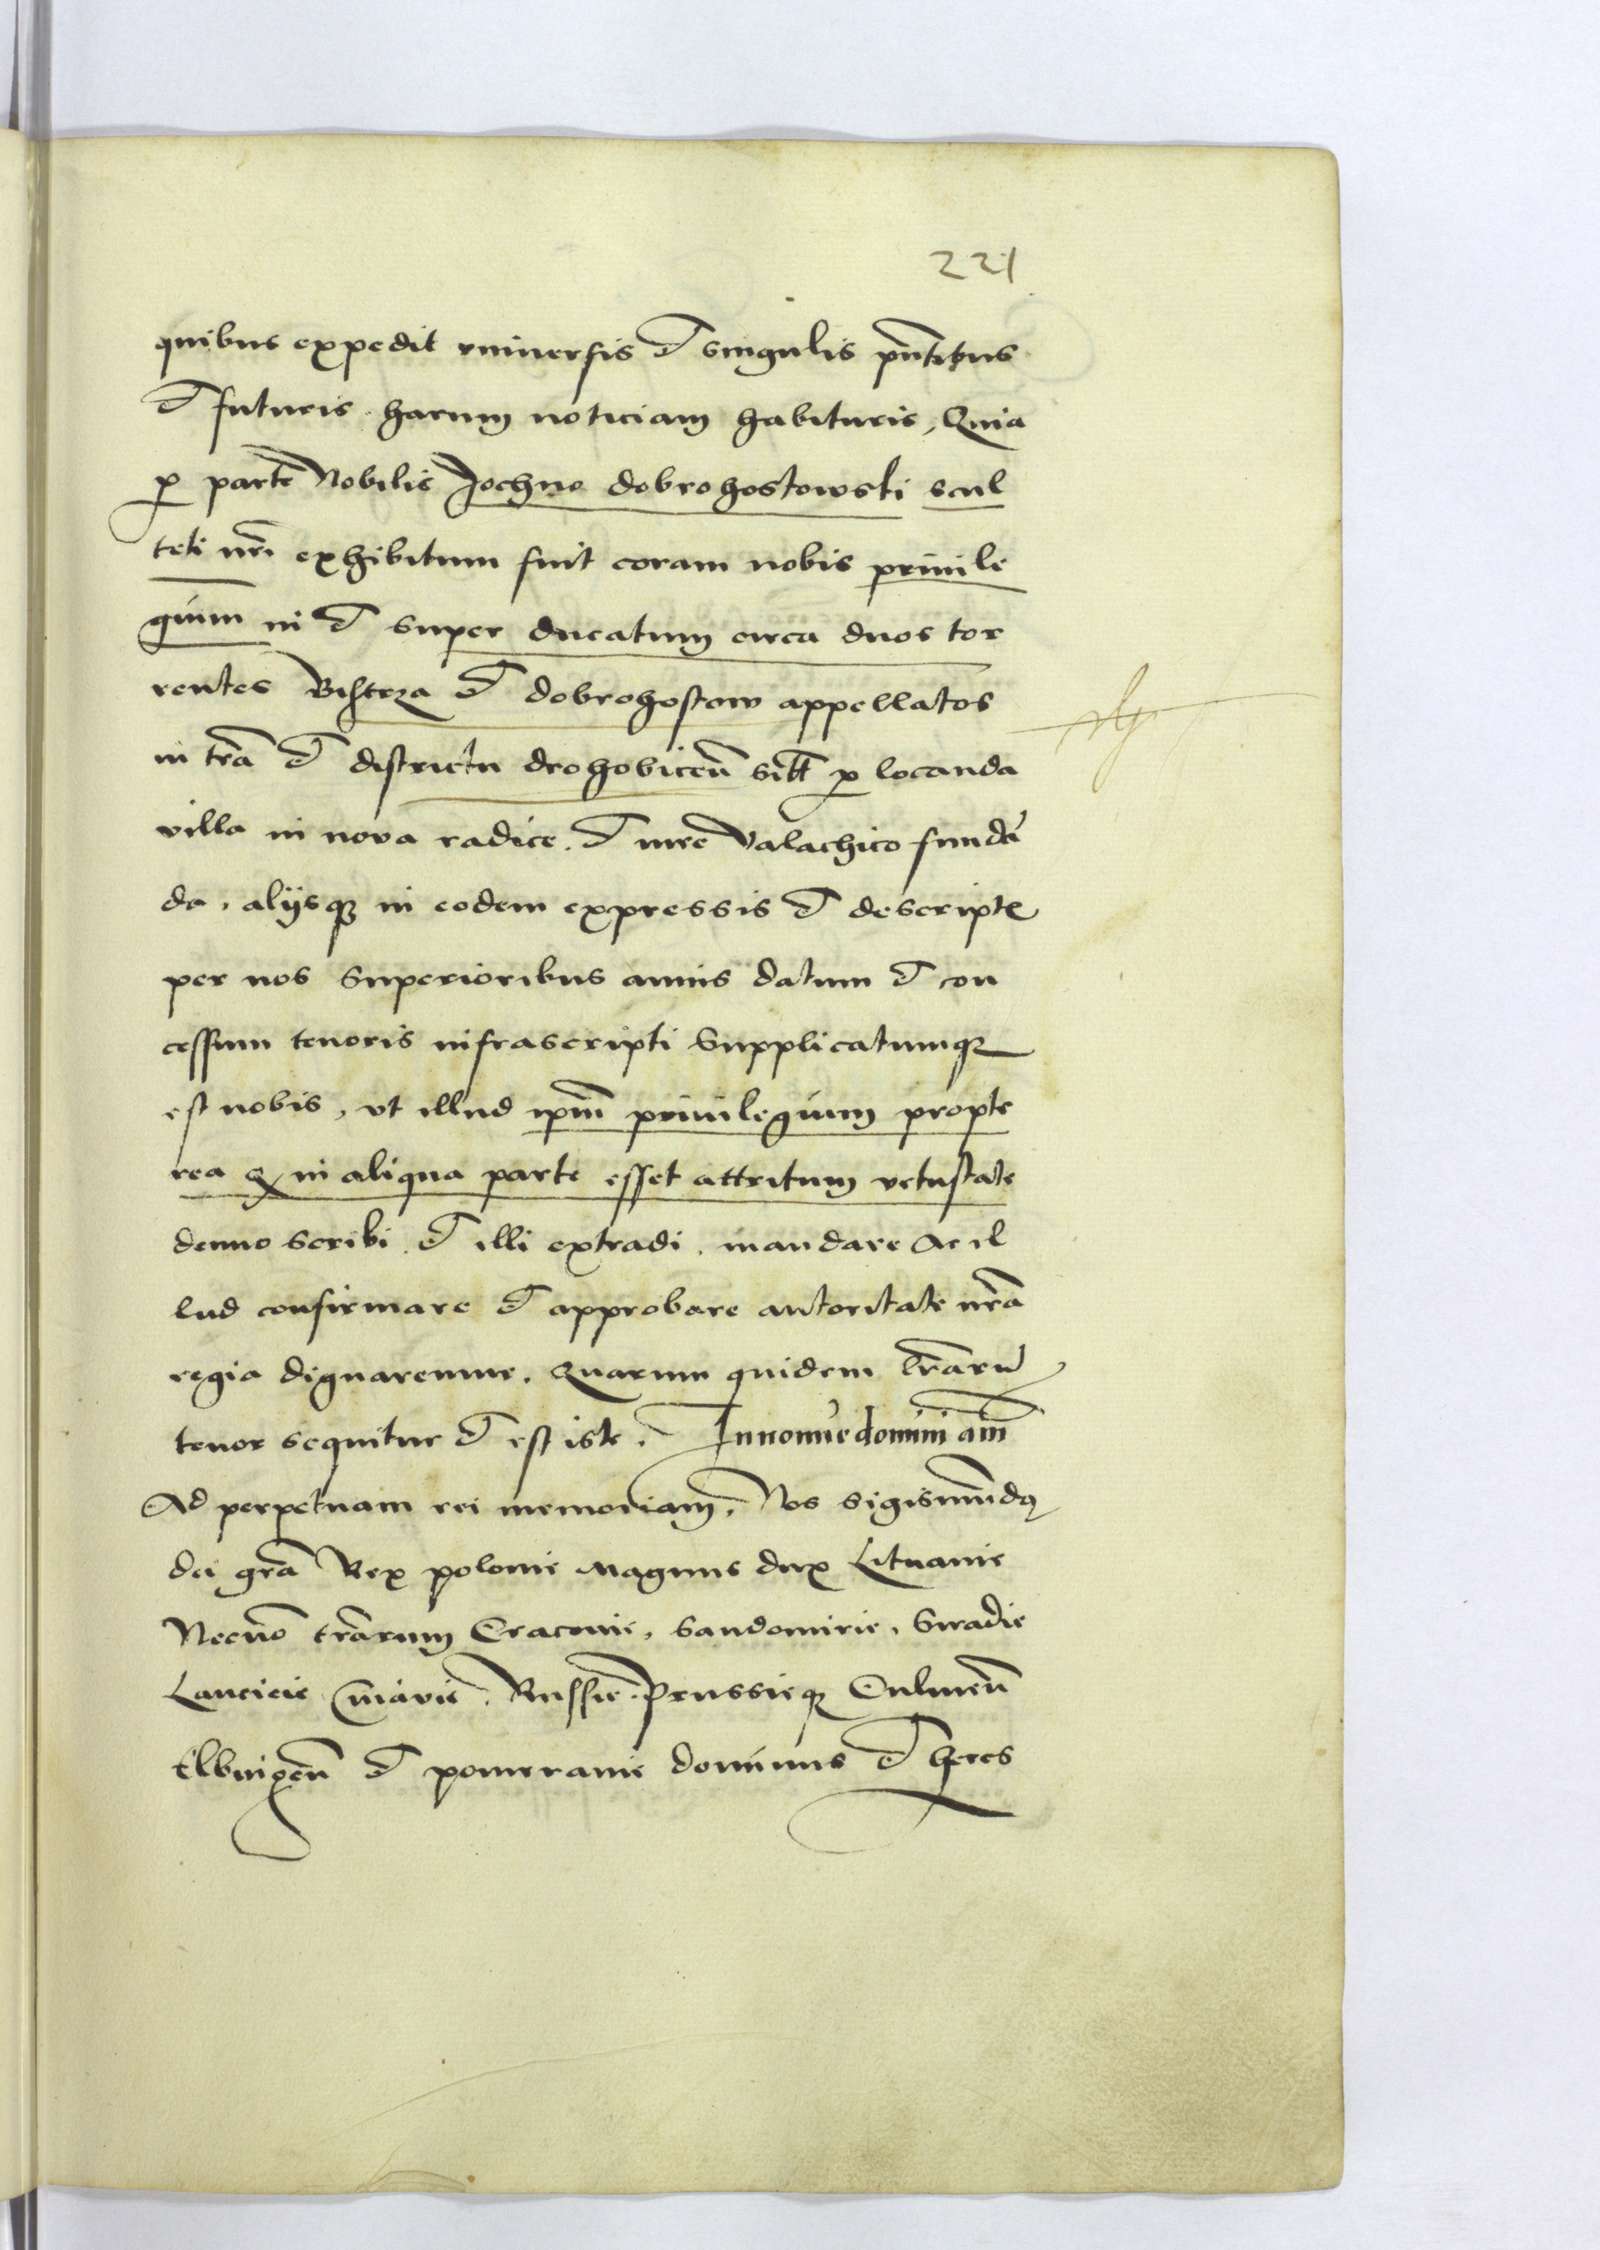 221
quibus expedit vniuersis et singulis pñtibus
et futuris harum noticiam habituris, Quia
p parte Nobilis Jochno dobrohostowski scul
teti nrĩ exhibitum fuit coram nobis priuile
gium in et super ducatum circa duos tor
rentes Bistrza et dobrohostow appellatos
in trã et districtu drohobiceñ sit̃ p locanda
villa in nova radice et iure Valachico fundã
da, alijsq in eodem expressis et descriptꝭ
per nos superioribus annis datum et con
cessum tenoris infrascripti Supplicatumqꝫ
est nobis, vt illud ipm̃ priuilegium propte
rea qꝫ in aliqua parte esset attritum vetustate
denuo scribi et illi extradi mandare Ac il
lud confirmare et approbare autoritate nrã
regia dignaremur. Quarum quidem lrãrũ
tenor sequitur et est iste. In nomie domini am̃
Ad perpetuam rei memoriam. Nos Sigismũdꝰ
dei grã Rex polonie Magnus dux Lituanie
Necnõ trãrum Cracouie, Sandomirie, Siradie
Lancicie Cuiavie, Russie Prussieqꝫ Culmeñ
Elbingeñ et pomeranie dominus et heres